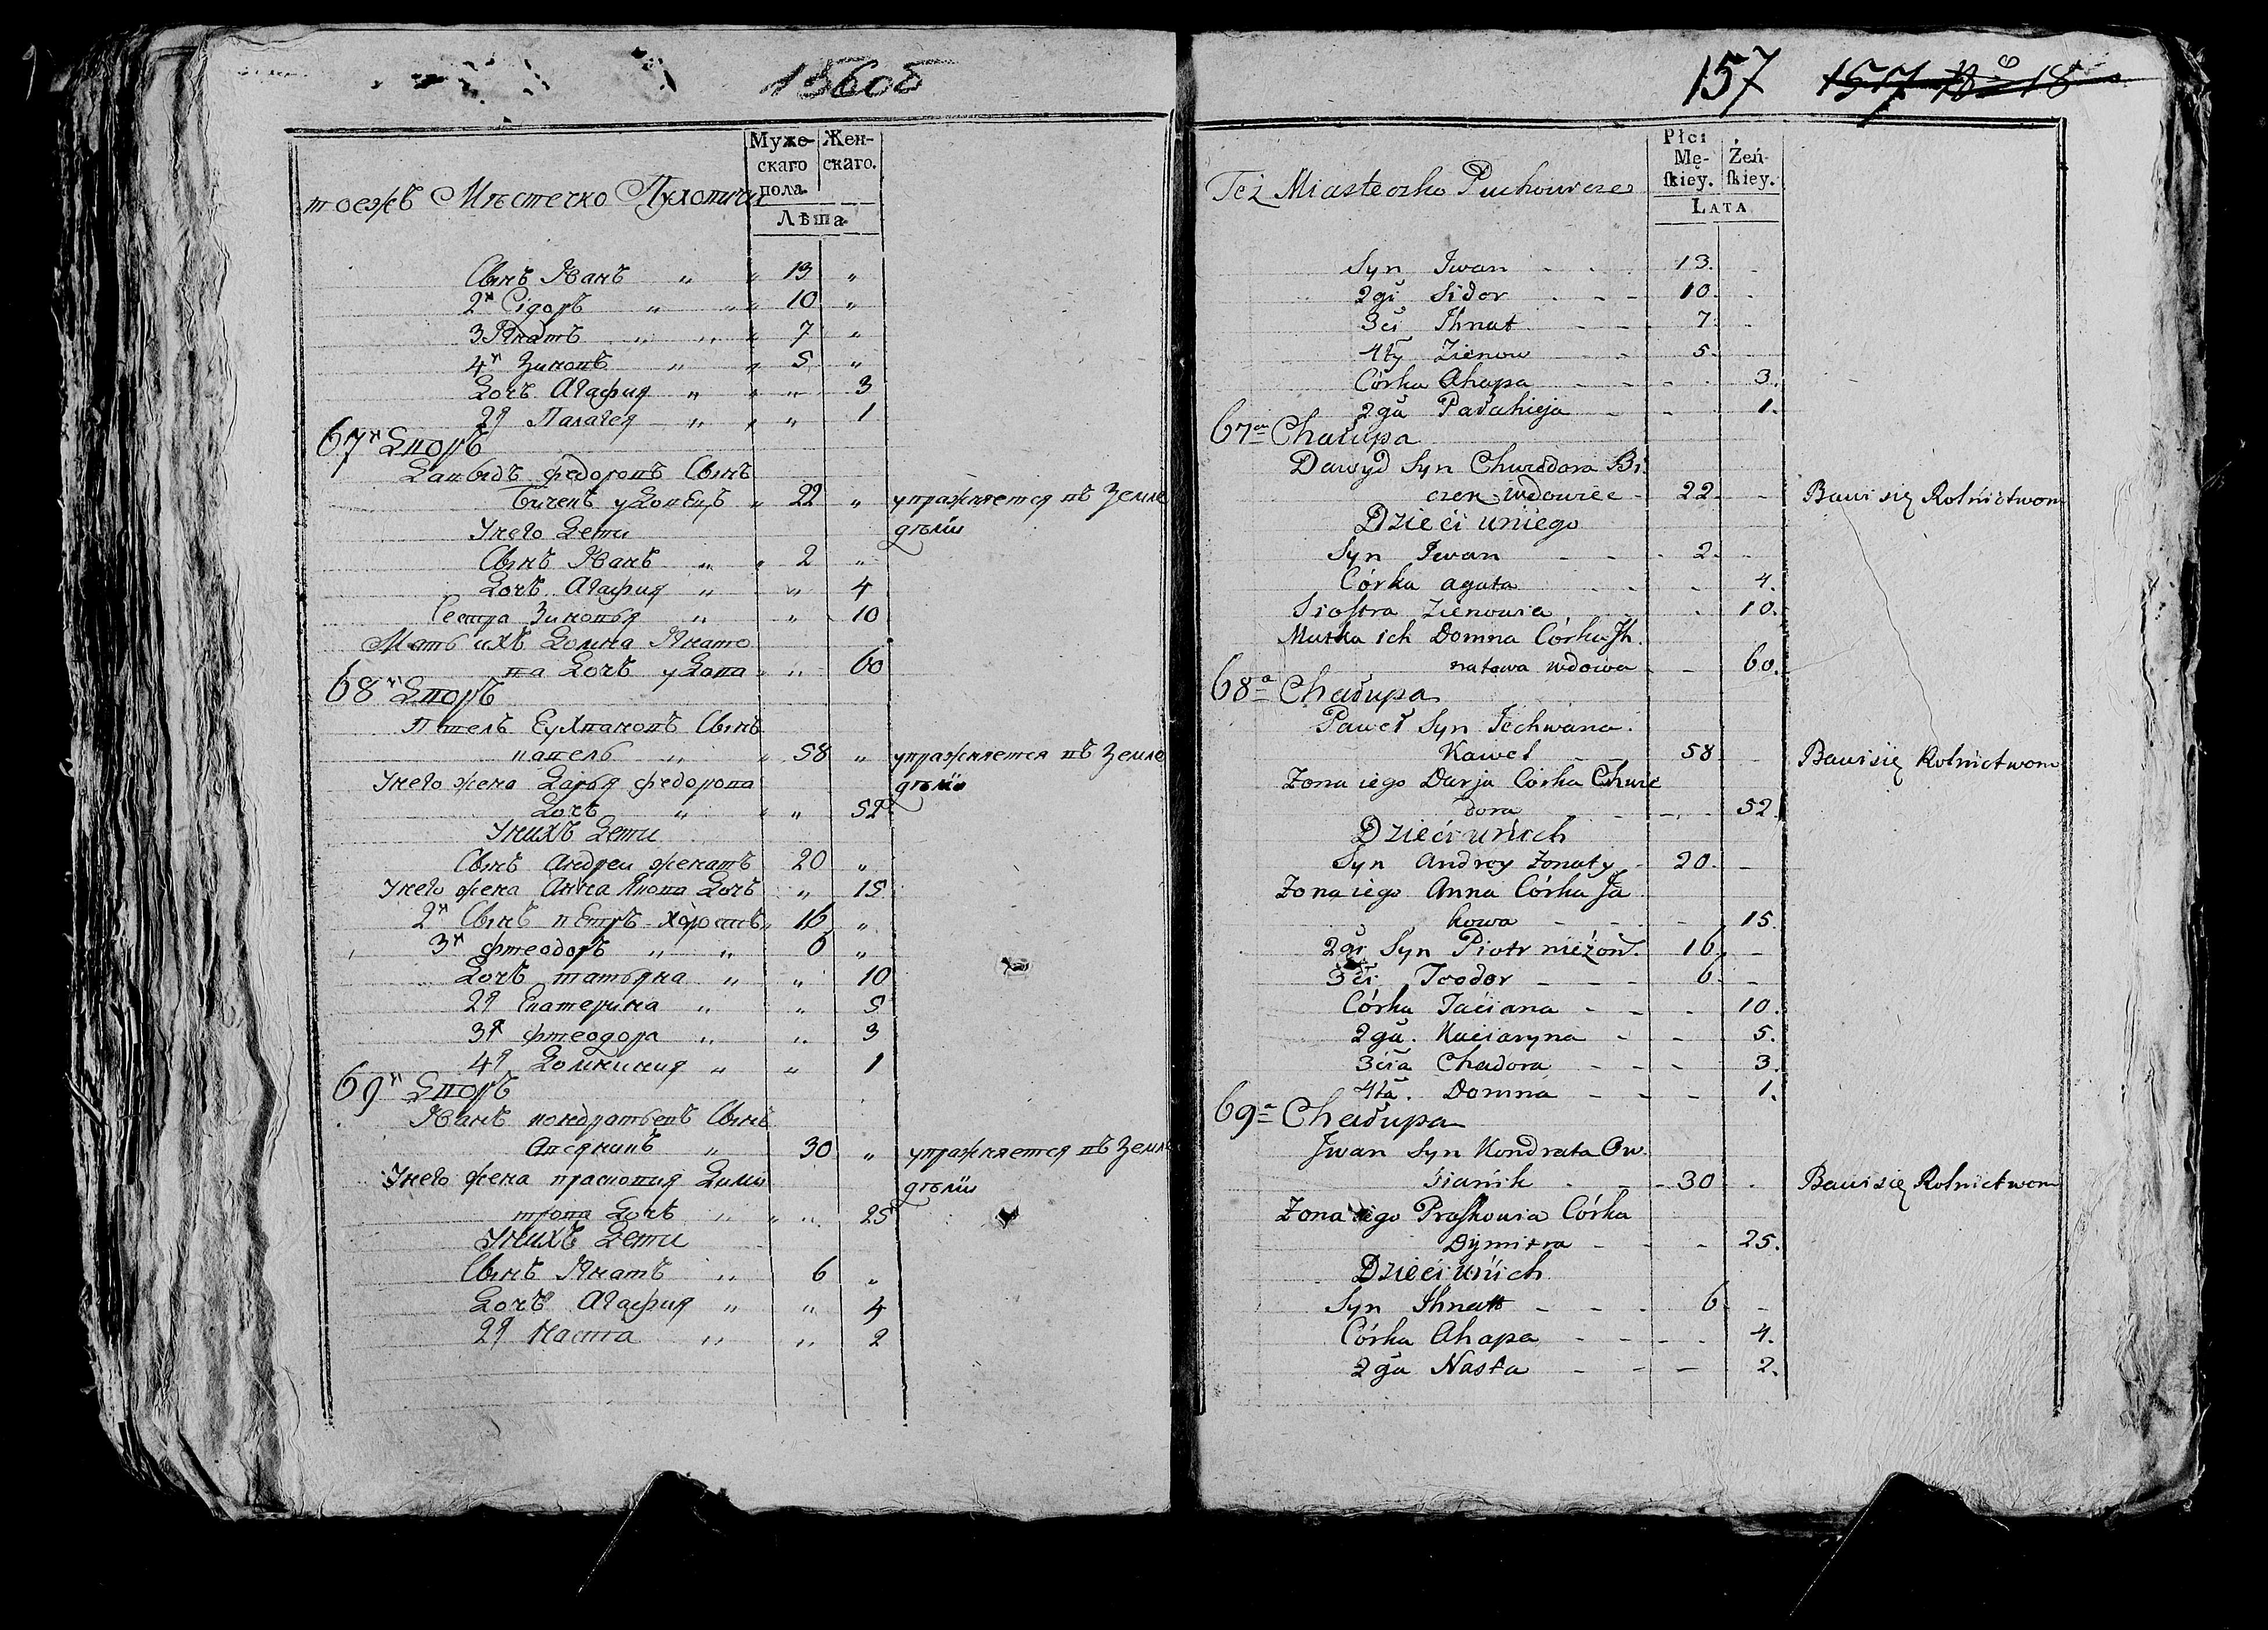 156об
тоежъ Мѣстечко Пухопичи
Муже-
скаго
пола.
Жен-
скаго.
Лѣта.
Сынъ Иванъ " " 13 "
2й Сідоръ " " " 10 "
3 Игнатъ " " " 7 "
4й Зинопъ " " 5 "
Дочь Агафия " " " 3
2я Палагея " " " 1
67й Дпоръ
Дапыдъ федоропъ Сынъ
Биченъ удопецъ " 22 " упражняется пъ Земле
Унего Дети
дѣліи
Сынъ Иванъ " " 2 "
Дочь Агафия " " 4
Сестра Зинопья " " 10
Мать ихъ Домна Игнато
па Дочь удопа " " 60
68й Дпоръ
Папелъ Сынъ
" " 58 " упражняется пъ Земле
Унего жена Дарья федоропа
дѣліи
Дочь " " " 52
Унихъ Дети
Сынъ Андреи женатъ 20 "
Унего жена Анна Дочь " 15
2й Сынъ петръ холостъ " 16 "
3й фтеодоръ " " 6 "
Дочь татьяна " " 10
2я Екатерина " " 5
3я фтеодора " " 3
4я " " 1
69й Дпоръ
Иванъ кондратьепъ Сынъ
" 30 " упражняется пъ Земле
Унего жена праскопия Дими
дѣліи
тропа Дочь " " " 25
Унихъ Дети
Сынъ Игнатъ " 6 "
Дочь Агафия " " 4
2я Наста " " 2
157
Też Miasteczko Puchowicze
Płci
Mę-
ſkiey.
Żeń-
ſkiey.
LATA
Syn Iwan - - - 13. -
2gi Sidor - - - 10. -
3ci Ihnat - - - 7. -
4ty Zienow - - 5. -
Córka Ahapa - - - - 3.
2ga Pałahieja - - 1.
67a Chałupa
Dawyd Syn Chwedora Bi
czen wdowiec - 22. - Bawi się Rolnictwom
Dzieci uniego
Syn Iwan - - - 2. -
Córka agata - - - 4.
Siostra Zienowia - 10.
Matka ich Domna Córka Jh
natowa wdowa - - 60.
68a Chałupa
Paweł Syn Jechwana
Kawel - - 58 - Bawi się Rolnictwom
Zona iego Darja Córka Chwe
dora - - - 52.
Dzieci unich
Syn Andrey Zonaty - 20. -
Zona iego Anna Córka Ja
kowa - - - 15.
2gi Syn Piotr nieżon. 16. -
3ci Teodor - - - 6. -
Córka Taciana - - - 10.
2ga. Kaciaryna - - 5.
3cia Chadora - - - 3.
4ta. Domna - - - 1.
69a Chałupa
Iwan Syn Kondrata Ow
sianik - - - 30 - Bawi się Rolnictwom
Zona iego Praskowia Córka
Dymitra - - - 25.
Dzieci unich
Syn Ihnatt - - - 6. -
Córka Ahapa - - - - 4.
2ga Nasta - - - 2.